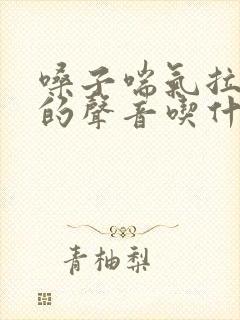 嗓子喘氣拉
的聲音喫什
青柚梨